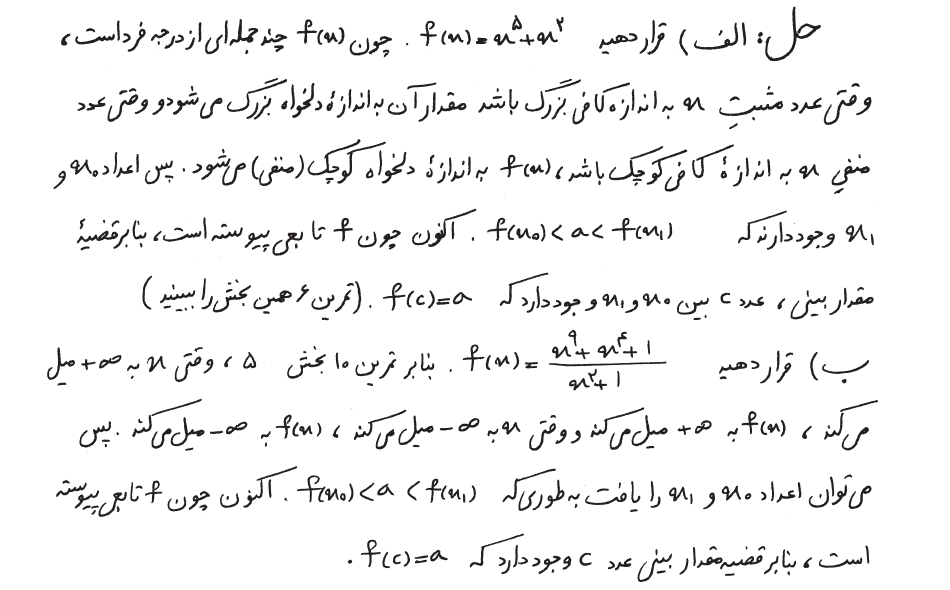 حل: الف) قرار دهید f(x)=x^۵+x^۲ . چون f(x) چند جمله‌ای از درجه فرد است،
وقتی عدد مثبتِ x به اندازه کافی بزرگ باشد مقدار آن به اندازهٔ دلخواه بزرگ می‌شود و وقتی عدد
منفیِ x به اندازهٔ کافی کوچک باشد، f(x) به اندازهٔ دلخواه کوچک (منفی) می‌شود. پس اعداد x₀ و
x₁ وجود دارند که f(x₀)<a<f(x₁) . اکنون چون f تابعی پیوسته است، بنابر قضیهٔ
مقدار بینی، عدد c بین x₀ و x₁ وجود دارد که f(c)=a . (تمرین ۶ همین بخش را ببینید)
ب) قرار دهید f(x)=(x^۹+x^۴+۱)/(x^۲+۱) . بنابر تمرین ۱۰ بخش ۵، وقتی x به +∞ میل
می‌کند، f(x) به +∞ میل می‌کند و وقتی x به -∞ میل می‌کند، f(x) به -∞ میل می‌کند. پس
می‌توان اعداد x₀ و x₁ را یافت به طوری که f(x₀)<a<f(x₁) . اکنون چون f تابعی پیوسته
است، بنابر قضیه مقدار بینی عدد c وجود دارد که f(c)=a .